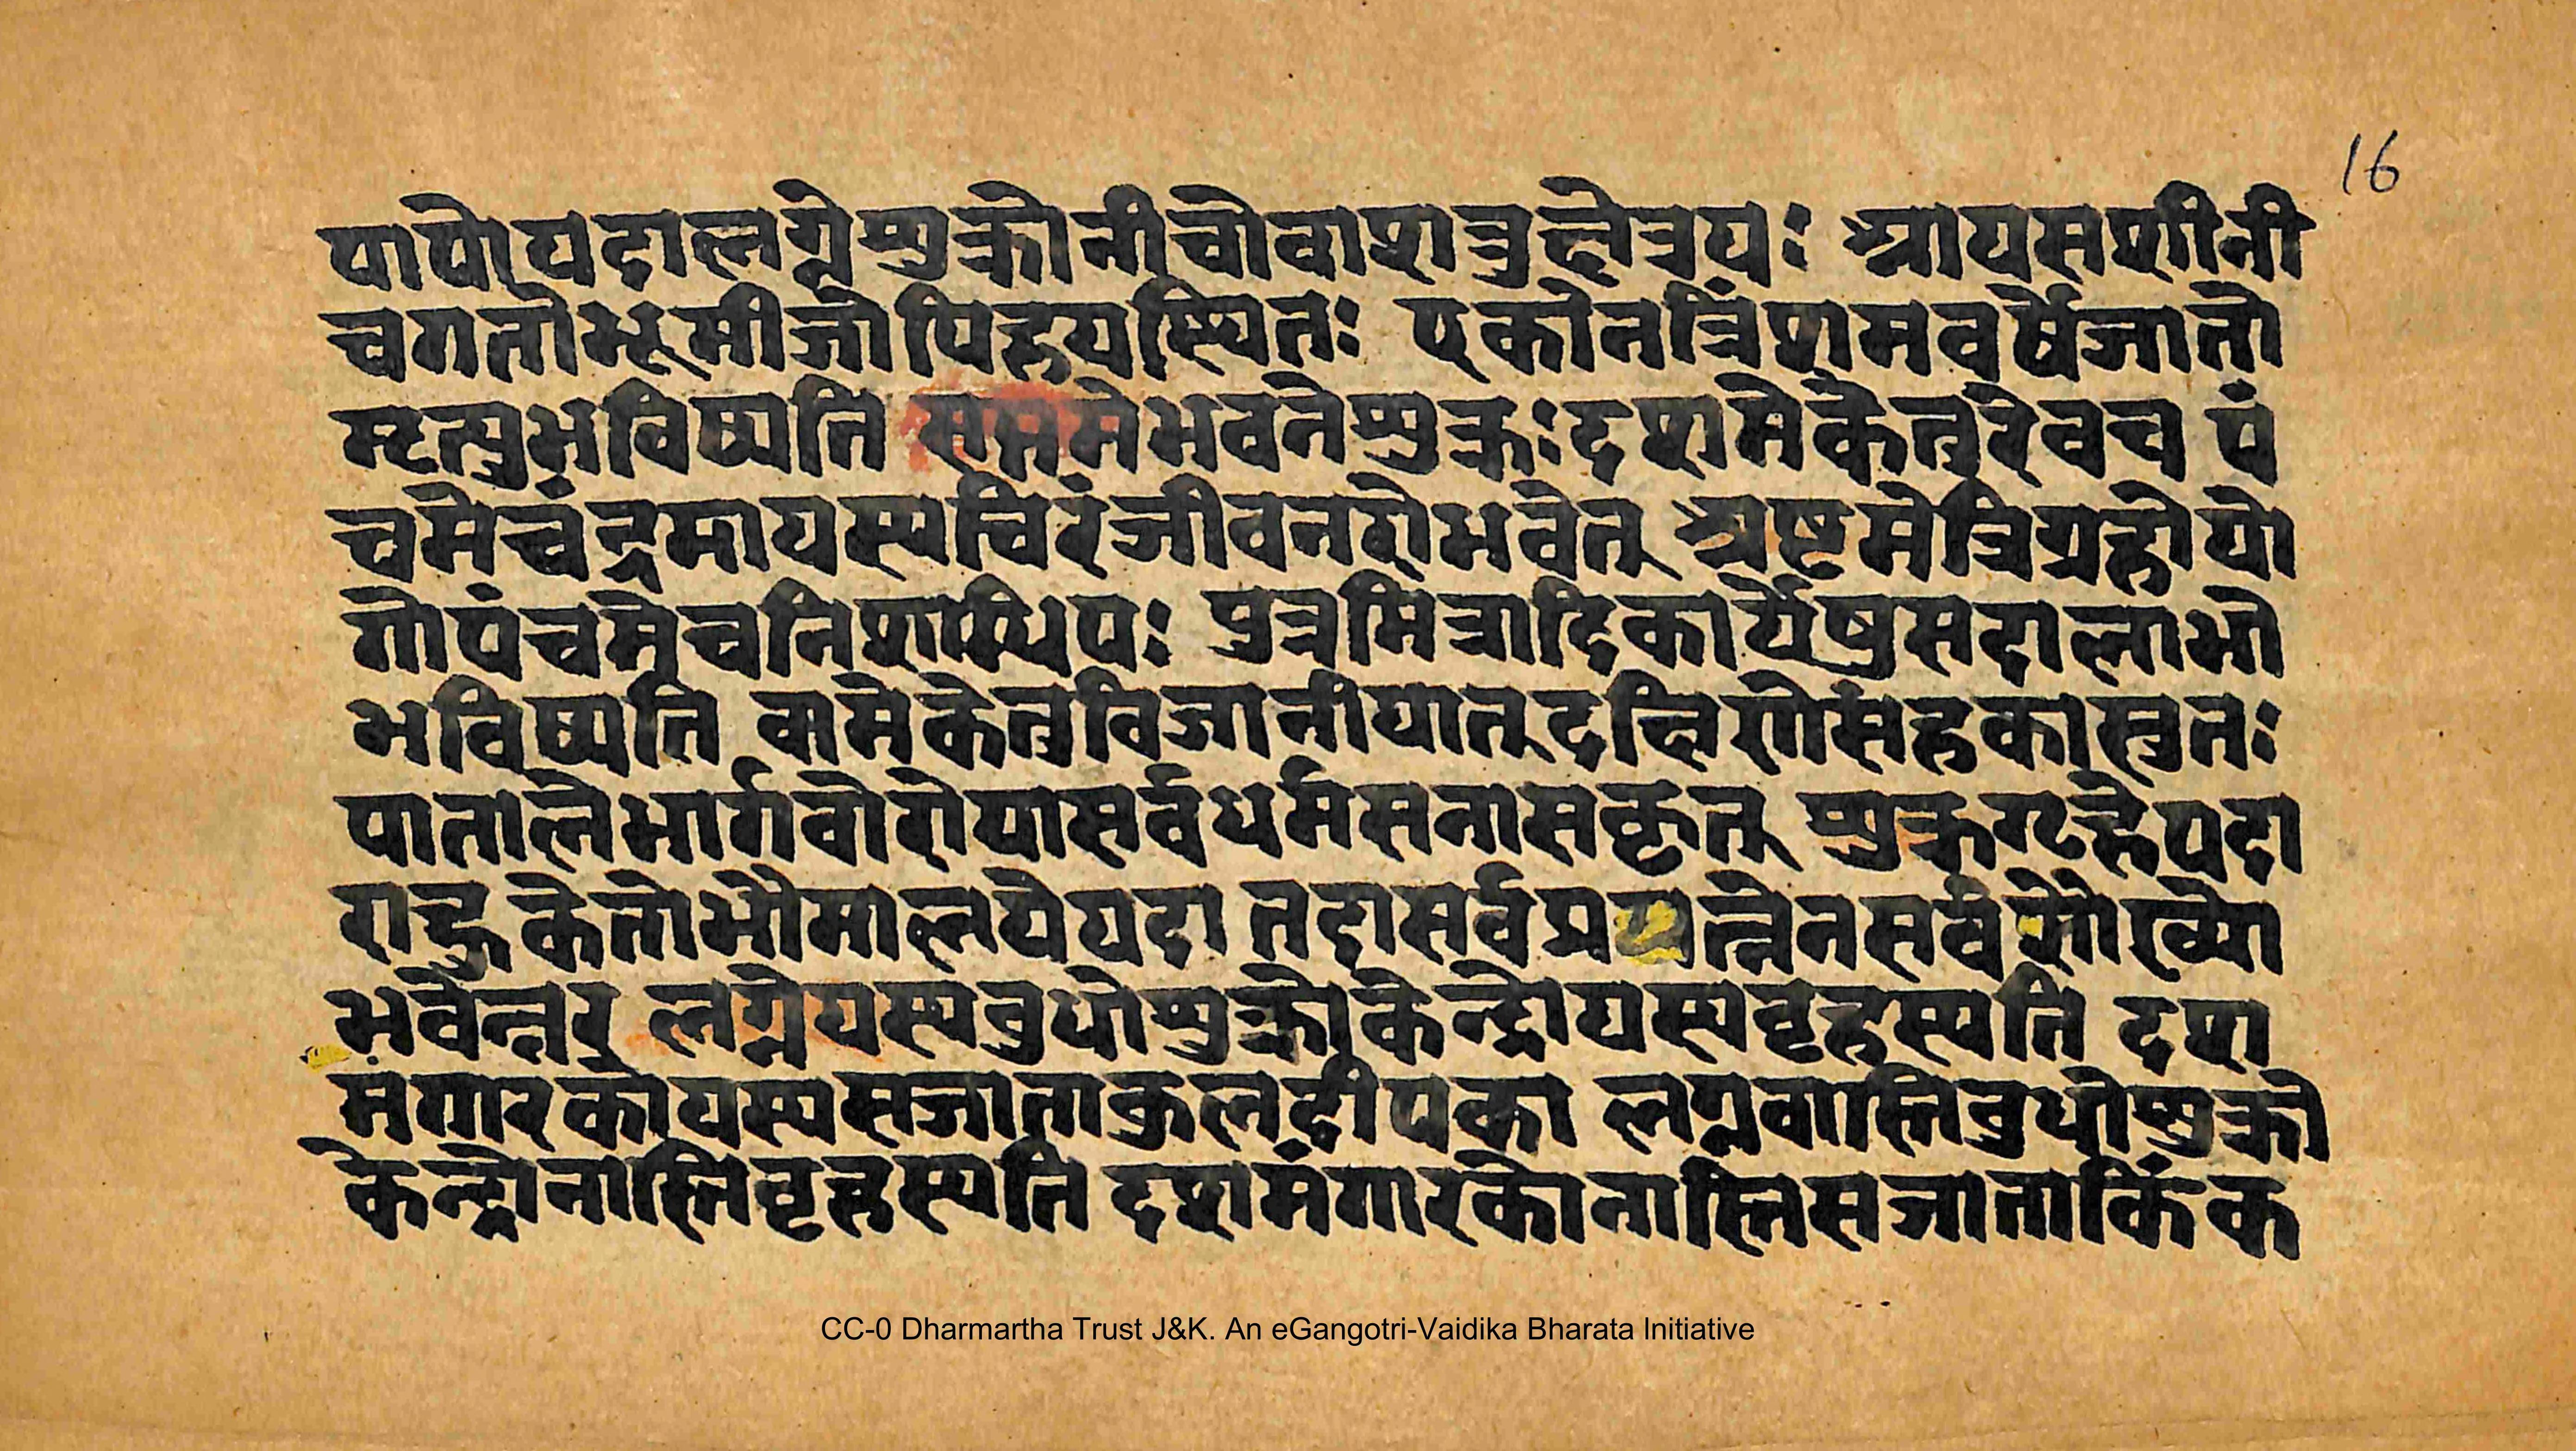 16
पापोयदालग्नेशुक्रोनीचोवाशत्रुक्षेत्रयः आयसशीनी
चगतोभूमीजोपिहयस्थितः एकोनत्रिंशमवर्षेजातो
मृत्युर्भविष्यति सप्तमेभवनेशुक्रःदशमेकेतुरेवच पं
चमेचंद्रमायस्यचिरंजीवनरोभवेत् अष्टमेत्रिग्रहोयो
गोपंचमेचनिशाधिपः पुत्रमित्रादिकार्येषुसदालाभो
भविष्यति वामेकेतुविजानीयात्दक्षिणेसंहकास्तुतः
पातालेभार्गवोरोयासर्वधर्मसनासकृत् शुक्रगृहेपदा
राहुकेतोभौमालयेयदा तदासर्वप्रयत्नेनसर्वसौख्यो
भवेन्नर लग्नेयस्यबुधोशुक्रोकेन्द्रोयस्यबृहस्पति दश
मंगारकोयस्यसजाताकुलदीपका लग्नवास्तिबुधोशुक्रो
केन्द्रोनास्तिबृहस्पति दशमंगारकोनास्तिसजाताकिंक
CC-0 Dharmartha Trust J&K. An eGangotri-Vaidika Bharata Initiative